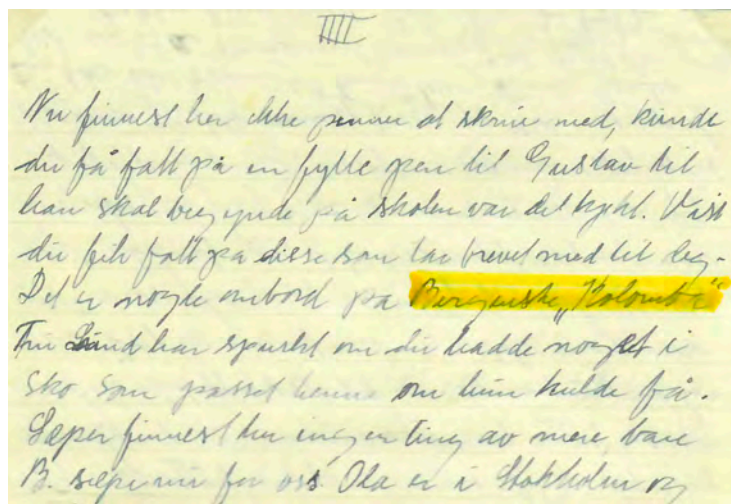 IIII
Nu finnest her ikke penner at skrive med, kunde
du få fatt på en fylle pen til Gustav til
han skal begynde på skolen var det hykl. Vist
du fik fatt på disse som tar brevet med til deg.
Det er nogle ombord på Bergenske „Kolombia"
Fru Sand har spurkt om du hadde noget i
sko som passet henne om hun kulde få.
Såper finnest her ingen ting av mere bare
B. såpe nu for oss. Ola er i Stokholm og